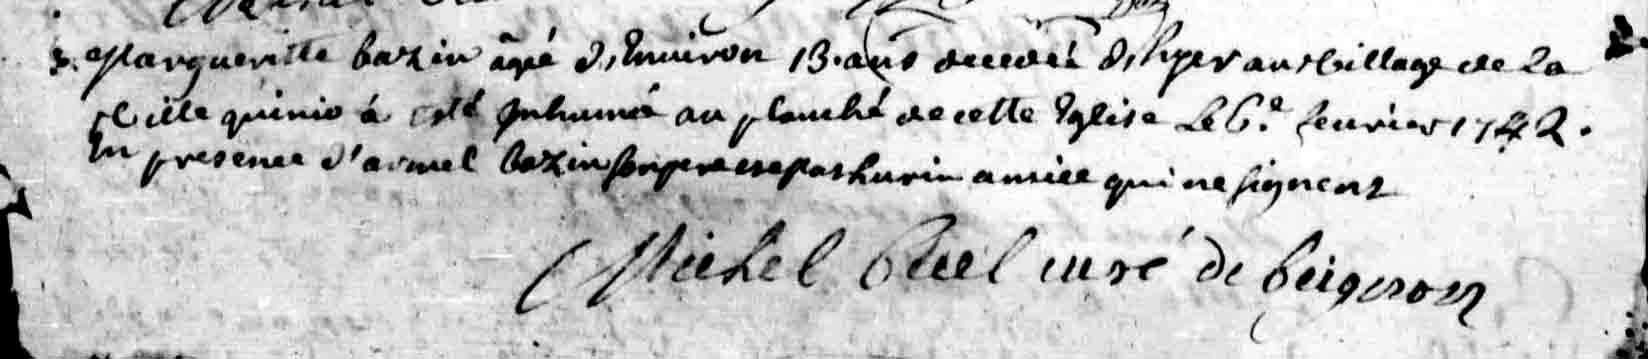 Margueritte bazin âgé d'Environ 13. ans decedeé d'hyer au Village de La
Ville quinio à esté Inhumée au planché de cette Eglise Le 6.e feuvrier 1742.
En presence d'armel bazin son pere et de mathurin qui ne signent
Michel curé de beignon